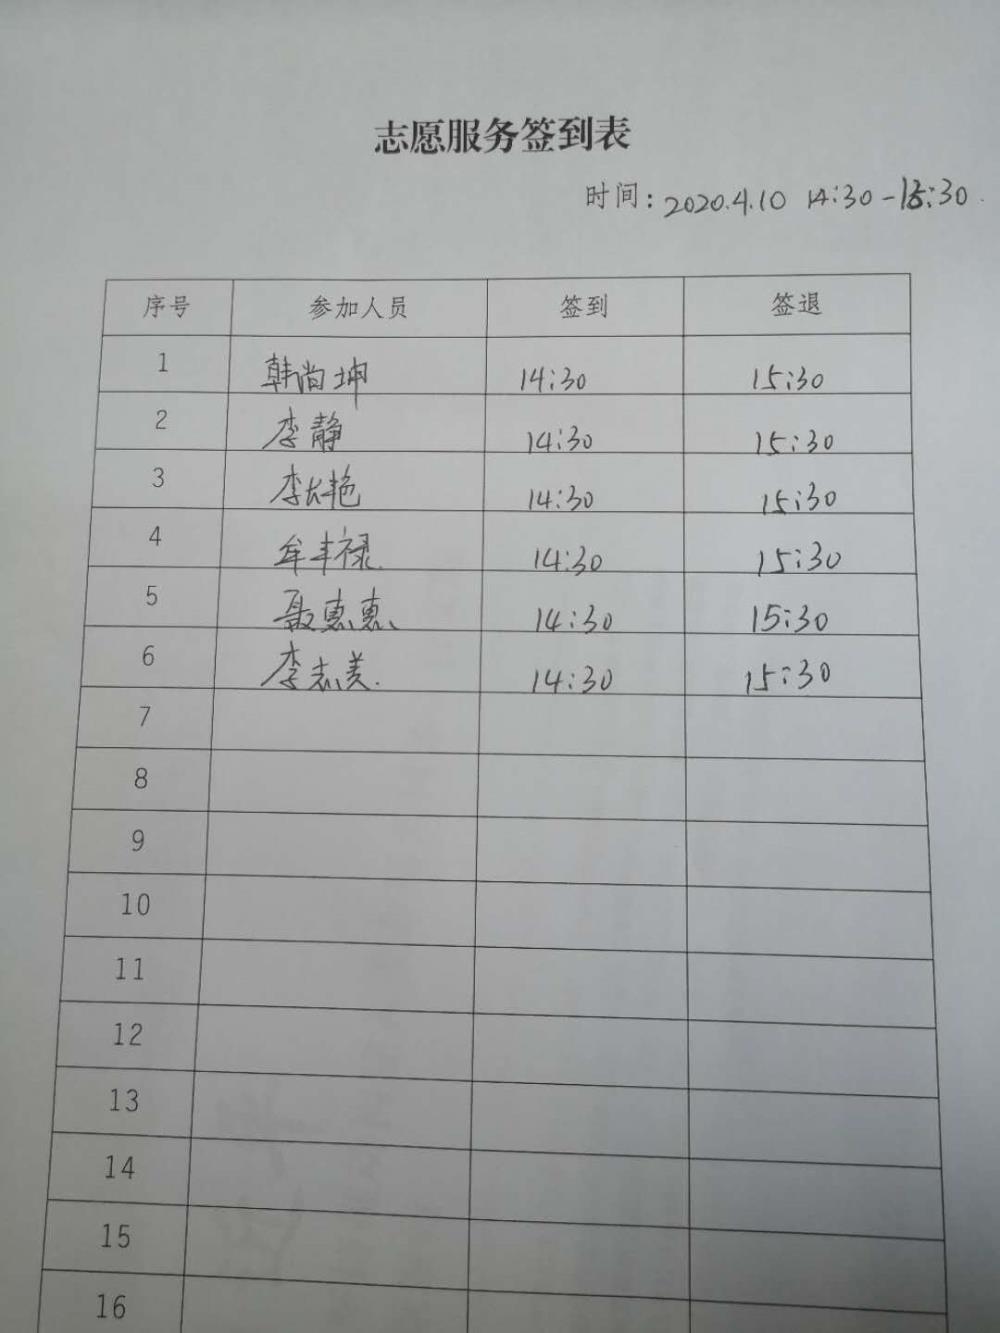 志愿服务签到表
时间：2020.4.10 14:30-15:30
序号 参加人员 签到 签退
1 韩尚坤 14:30 15:30
2 李静 14:30 15:30
3 李长艳 14:30 15:30
4 牟丰禄 14:30 15:30
5 聂惠惠 14:30 15:30
6 李志美 14:30 15:30
7
8
9
10
11
12
13
14
15
16